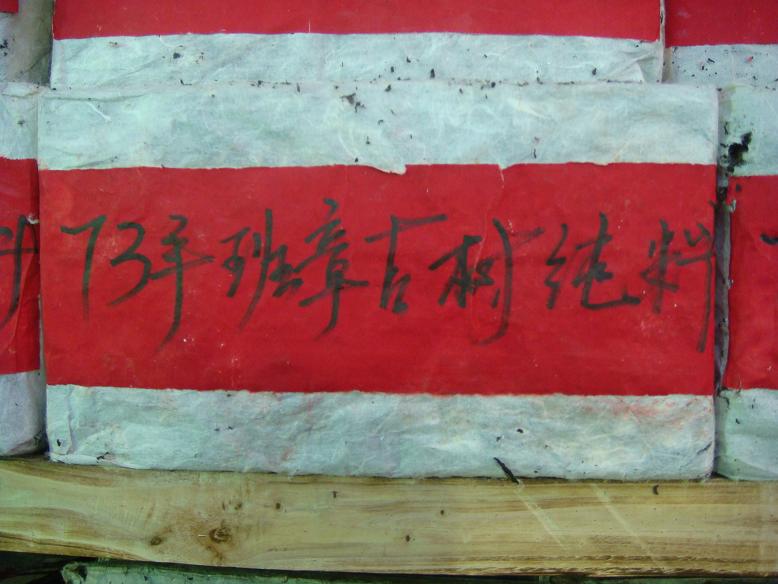 73年班章古树纯料